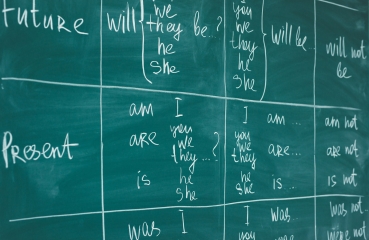 Future will we be...?
they
he
she
you
we
they
he
she
will be
will not
be
Present
am I
are you
we
they...?
is he
she
I am...
you
we are...
they
he is...
she
am not
are not
is not
was I
I was
was not
were not